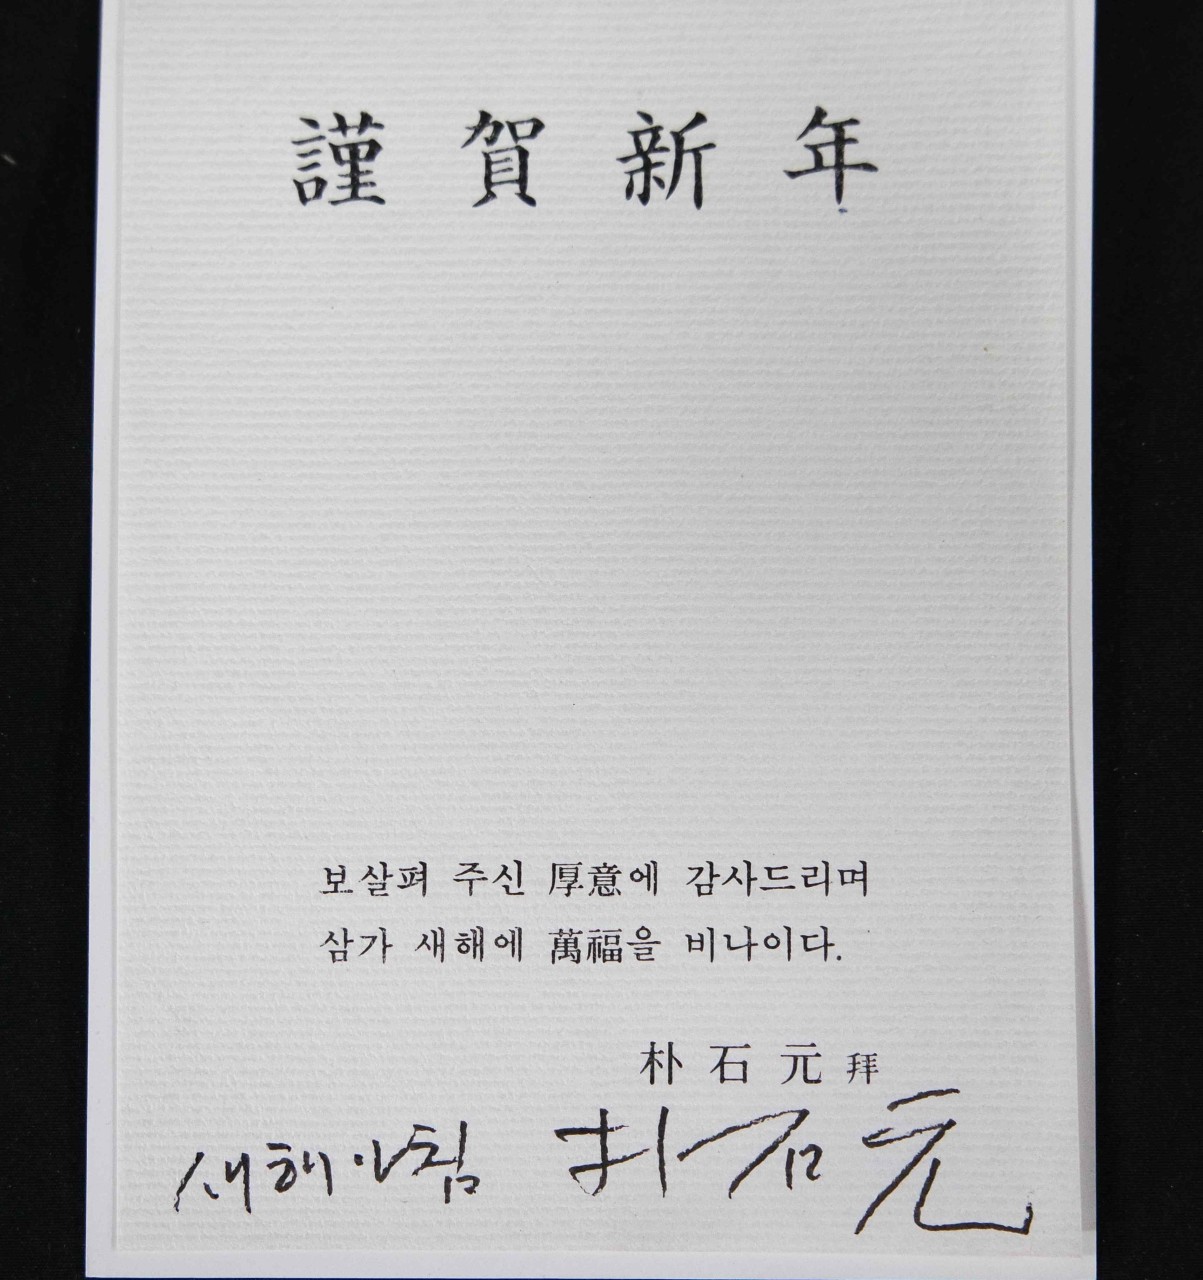 謹賀新年
보살펴 주신 厚意에 감사드리며
삼가 새해에 萬福을 비나이다.
朴石元 拜
새해아침 朴石元